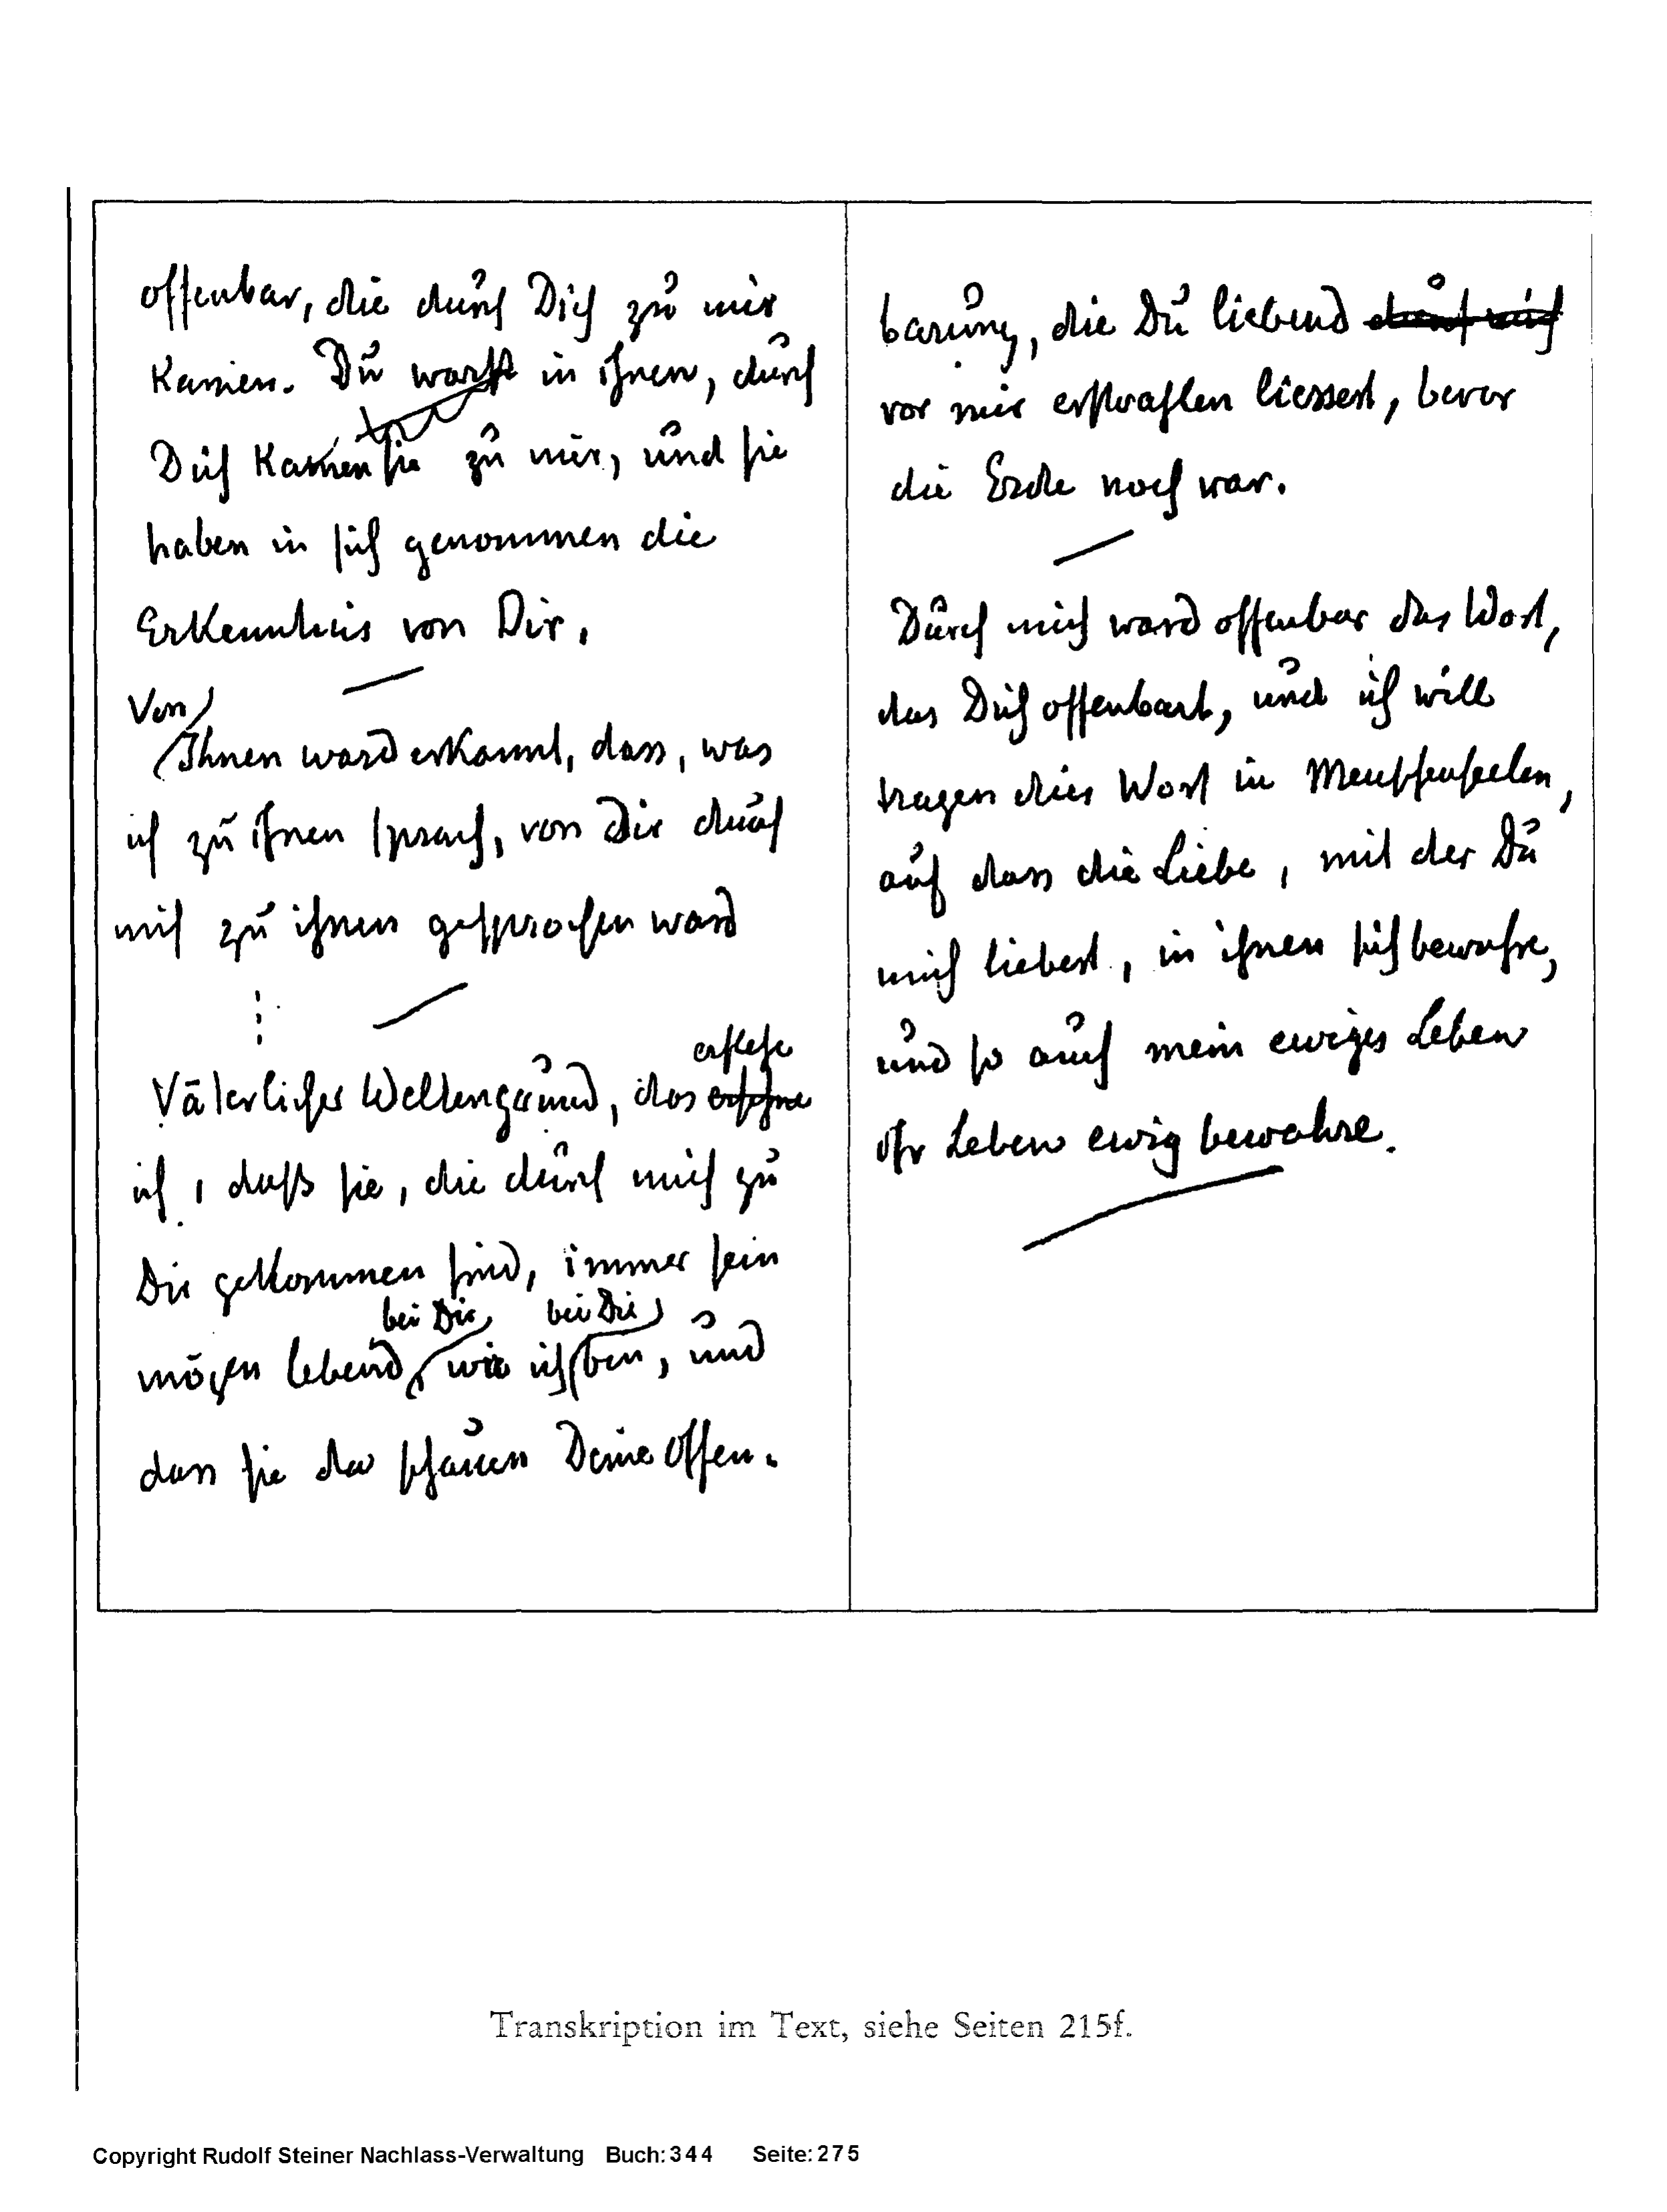 offenbar, die durch Dich zu mir
kamen. Du warst in ihnen, durch
Dich kamen sie zu mir, und sie
haben in sich genommen die
Erkenntnis von Dir.
Von
Ihnen ward erkannt, dass, was
ich zu ihnen sprach, von Dir durch
mich zu ihnen gesprochen ward
erflehe
Väterlicher Weltengrund, das ersehne
ich, daß sie, die durch mich zu
Dir gekommen sind, immer sein
bei Dir, bei Dir
mögen lebend, wie ich bin, und
dass sie da schauen Deine Offen-
barung, die Du liebend durch mich
vor mir erstrahlen liessest, bevor
die Erde noch war.
Durch mich ward offenbar das Wort,
das Dich offenbart, und ich will
tragen dies Wort in Menschenseelen,
auf dass die Liebe, mit der Du
mich liebest, in ihnen sich bewahre,
und so auch mein ewiges Leben
ihr Leben ewig bewahre.
Transkription im Text, siehe Seiten 215f.
Copyright Rudolf Steiner Nachlass-Verwaltung Buch: 344 Seite: 275